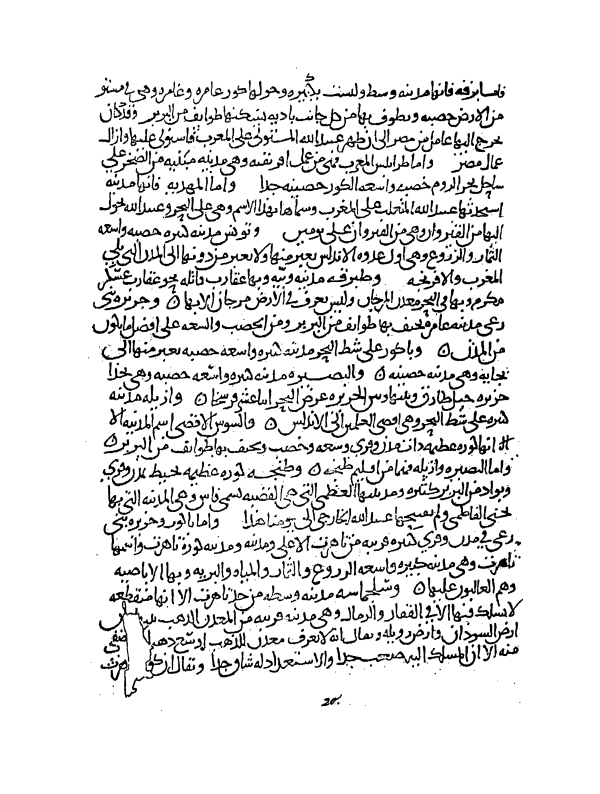 فاما برقه فانها مدينه وسط وليست بكبيره وحولها كور عامره وغامره وهى فى مستو
من الارض خصبه ويطوف بها من كل جانب باديه يسكنها طوايف من البربر وقد كان
يخرج اليها عامل من مصر الى ان ظهر عبد الله المستولى على المغرب فاستولى عليها وازال
عمال مصر واما طرابلس المغرب فهى من عمل افريقيه وهى مدينه مبنيه من الصخر على
ساحل بحر الروم خصبه واسعه الكور حصينه جدا واما المهديه فانها مدينه
استحدثها عبد الله المتغلب على المغرب وسماها بهذا الاسم وهى على البحر وعبد الله تحول
اليها من القيروان وهى من القيروان على يومين وتونس مدينه كبيره خصبه واسعه
الثمار والزروع وهى اول عدوه الاندلس يعبر منها ولا يعبر من دونها الى المدن التى تلى
المغرب والافرنجه وطبرقه مدينه وبيه وبها عقارب قاتله نحو عقارب عسكر
مكرم وبها فى البحر معدن المرجان وليس يعرف فى الارض مرجان الا بها ○ وجزيره بنى
زعنى مدينه عامره يحيف بها طوايف من البربر ومن الخصب والسعه على افضل ما يكون
من المدن ○ وباكور على شط البحر مدينه كبيره واسعه خصبه يعبر منها الى
بجايه وهى مدينه حصينه ○ والبصيره مدينه كبيره واسعه خصبه وهى بحذا
جزيره جبل طارق وبينها وبين الجزيره عرض البحر اثنا عشر فرسخا ○ وازيله مدينه
كبيره على شط البحر وهى اقصى العملين الى الاندلس ○ والسوس الاقصى اسم المدينه الا
انها كوره عظيمه ذات مدن وقرى وسعه وخصب ويحيف بها طوايف من البربر ○
واما البصره وازيله فهما من اقليم طنجه ○ وطنجه كوره عظيمه تحيط بمدن وقرى
وبواد من البربر كثيره ومدينتها العظمى التى هى القصبه تسمى فاس وهى المدينه التى بها
يحيى الفاطمى ولم يفتحها عبد الله الخارجى الى يومنا هذا واما باكور وجزيره بنى
زعنى فى مدن وقرى كثيره قريبه من تاهرت الاعلى ومدينه ومدينه كوره تاهرت واسمها
تاهرت وهى مدينه كبيره واسعه الزروع والثمار والمياه والبريه وبها الاباضيه
وهم الغالبون عليها ○ وسجلماسه مدينه وسطه من حد تاهرت الا انها منقطعه
لا يسلك فيها الا فى القفار والرمال وهى مدينه قريبه من المعدن الذهب بينها وبين
ارض السودان وارض زويله ويقال انه لا يعرف معدن للذهب اوسع ذهبا اصفى
منه الا ان المسلك اليه صعب جدا والاستعداد له شاق جدا ويقال ان كوره تاهرت
20.